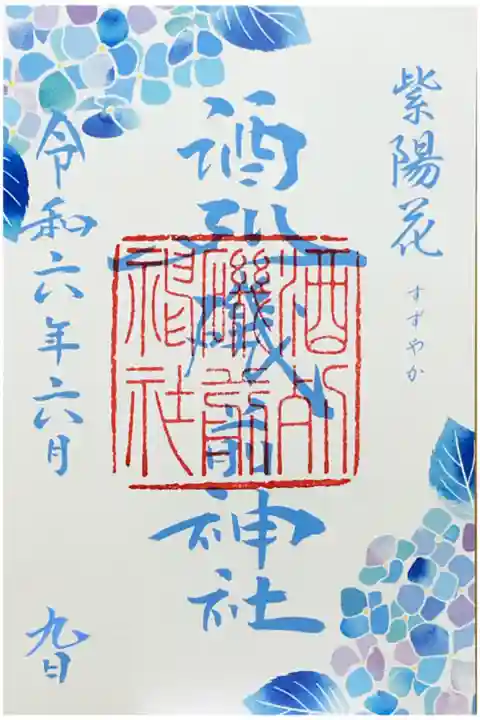 紫陽花
すずやか
酒列磯前神社
酒列
磯前
神社
令和六年六月
九日